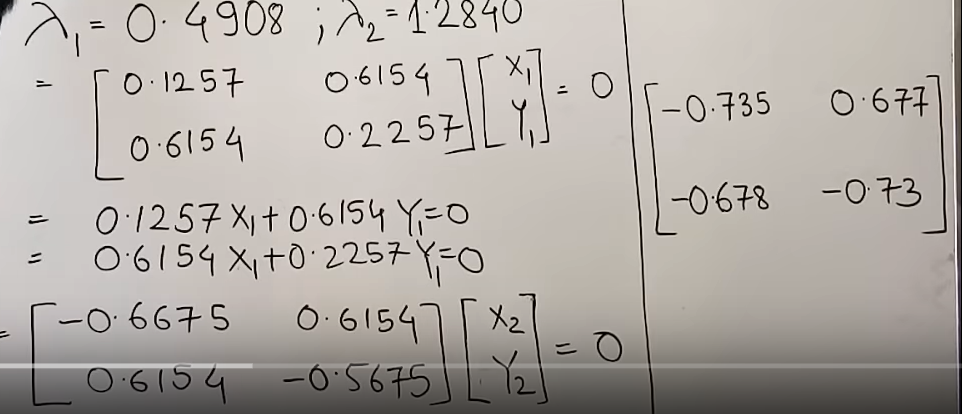 λ₁ = 0.4908 ; λ₂ = 1.2840
= [0.1257 0.6154
0.6154 0.2257] [X₁
Y₁] = 0
= 0.1257 X₁ + 0.6154 Y₁ = 0
= 0.6154 X₁ + 0.2257 Y₁ = 0
= [-0.6675 0.6154
0.6154 -0.5675] [X₂
Y₂] = 0
[-0.735 0.677
-0.678 -0.73]